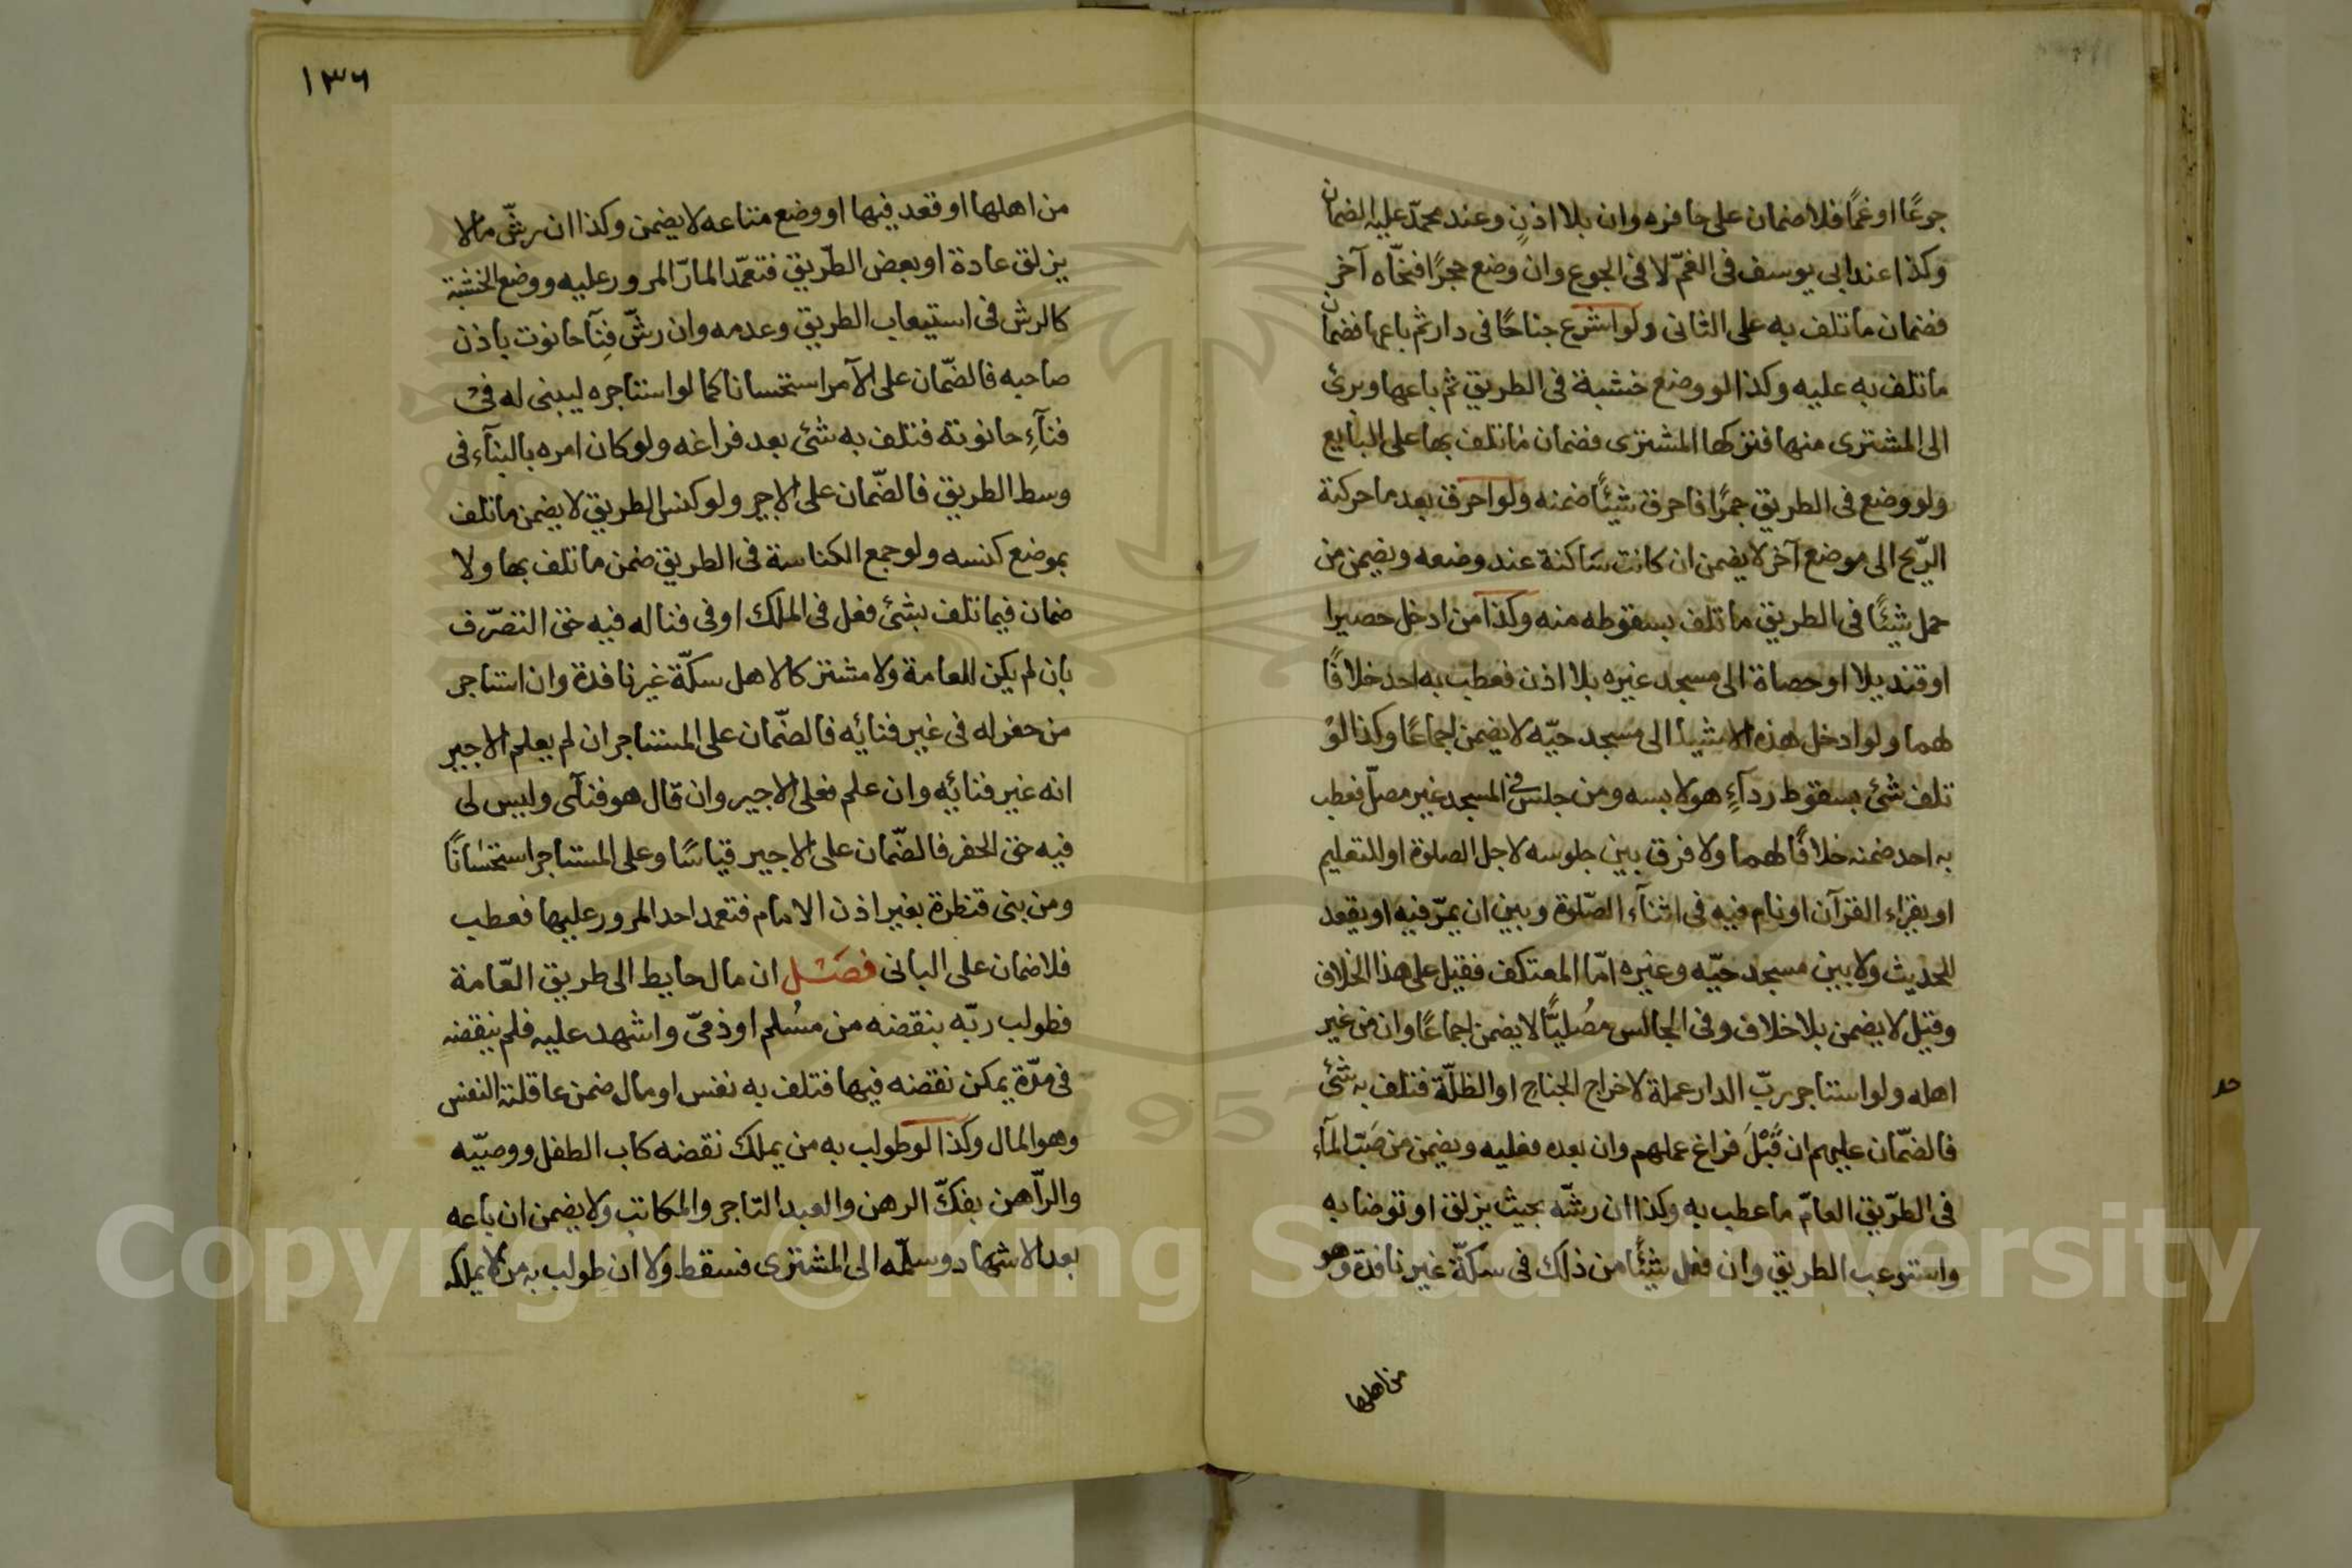 جوعًا او غمًا فلا ضمان على حافره وان بلا اذنٍ وعند محمّد عليه الضمان
وكذا عند ابى يوسف فى الغمّ لا فى الجوع وان وضع حجرًا فنحّاه آخر
فضمان ما تلف به على الثانى ولو اشرع جناحًا فى دار ثم باعها فضمان
ما تلف به عليه وكذا لو وضع خشبة فى الطريق ثم باعها وبرئ
الى المشترى منها فتركها المشترى فضمان ما تلف بها على البايع
ولو وضع فى الطريق جمرًا فاحرق شيئًا ضمنه ولو احرق بعد ما حركته
الرّيح الى موضع آخر لا يضمن ان كانت ساكنة عند وضعه ويضمن من
حمل شيئًا فى الطريق ما تلف بسقوطه منه وكذا من ادخل حصيرا
او قنديلا او حصاة الى مسجد غيره بلا اذن فعطب به احد خلافًا
لهما ولو ادخل هذه الاشياء الى مسجد حيّه لا يضمن اجماعًا وكذا لوْ
تلف شئ بسقوط ردآءٍ هو لابسه ومن جلس فى المسجد غير مصلّ فعطب
به احد ضمنه خلافًا لهما ولا فرق بين جلوسه لاجل الصلوة او للتعليم
او يقراء القرآن او نام فيه فى اثنآء الصّلوة وبين ان يمرّ فيه او يقعد
للحديث ولا بين مسجد حيّه وغيره امّا المعتكف فقيل على هذا الخلاف
وقيل لا يضمن بلا خلاف وفى الجالس مصُليًّا لا يضمن اجماعًا وان من غير
اهله ولو استاجر ربّ الدار عملة لاخراج الجناح او الظلّة فتلف به شئ
فالضّمان عليهم ان قَبْلَ فراغ عملهم وان بعده فعليه ويضمن من صَبّ المآء
فى الطّريق العامّ ما عطب به وكذا ان رشّه بحيث يزلق او توضا به
واستوعب الطريق وان فعل شيئًا من ذلك فى سكّة غير نافذة وهو
من اهلها
١٣٦
من اهلها او قعد فيها او وضع متاعه لا يضمن وكذا ان رشّ ما لا
يزلق عادة او بعض الطّريق فتعمّد المارّ المرور عليه ووضع الخشبة
كالرش فى استيعاب الطريق وعدمه وان رشّ فِنآ حانوت باذن
صاحبه فالضّمان على الآمر استحسانا كما لو استاجره ليبنى له فى
فنآءِ حانوته فتلف به شئ بعد فراغه ولو كان امره بالبنآء فى
وسط الطريق فالضّمان على الاجير ولو كنس الطريق لا يضمن ما تلف
بموضع كنسه ولو جمع الكناسة فى الطريق ضمن ما تلف بها ولا
ضمان فيما تلف بشئ فعل فى الملك او فى فنا له فيه حق التصّرف
بان لم يكن للعامة ولا مشتركا لاهل سكّة غير نافذة وان استاجر
من حفر له فى غير فنائه فالضّمان على المستاجر ان لم يعلم الاجير
انه غير فنائه وان علم فعلى الاجير وان قال هو فنآئى وليس لى
فيه حق الحفر فالضّمان على الاجير قياسًا وعلى المستاجر استحسَانًا
ومن بنى قنطرة بغير اذن الامام فتعمد احد المرور عليها فعطب
فلا ضمان على البانى فصَـْل ان مال حايط الى طريق العّامة
فطولب ربّه بنقضه من مسُلم او ذمىّ واشهد عليه فلم ينقضه
فى مدّة يمكن نقضه فيها فتلف به نفس او مال ضمن عاقلته النفس
وهو المال وكذا لو طولب به من يملك نقضه كاب الطفل ووصيّه
والرّاهن بفكّ الرهن والعبد التاجر والمكاتب ولا يضمن ان باعه
بعد الاشهاد وسلّمه الى المشترى فسقط ولا ان طولب به من لا يملكه
Copyright © King Saud University
1957